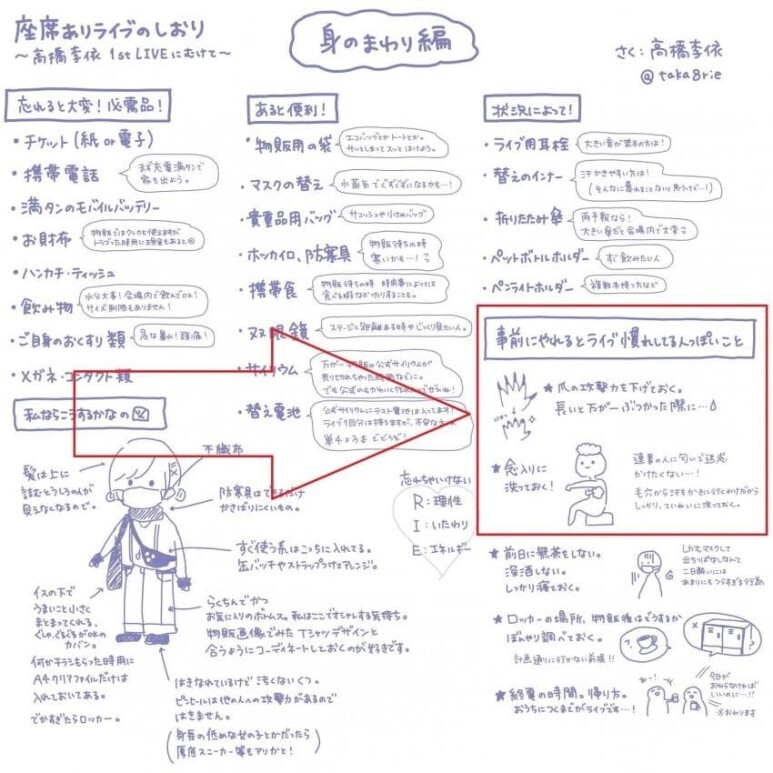 座席ありライブのしおり
〜高橋李依 1st LIVEにむけて〜
身のまわり編
さく：高橋李依
@taka8rie
忘れると大変！必需品！
・チケット(紙or電子)
・携帯電話
まず充電満タンで
家を出よう。
・満タンのモバイルバッテリー
・お財布
・ハンカチ・ティッシュ
・飲み物
水分大事！会場内で飲んでOK！
サイズ制限もありません！
・ご自身のおくすり類
急な暑れ！頭痛！
・メガネ・コンタクト類
あると便利！
・物販用の袋
エコバッグとかトートとか。
サッとしまってスッとはけよう。
・マスクの替え
水蒸気でぐずぐずになるかも…！
・貴重品用バッグ
サコッシュや小さめバッグ
・ホッカイロ、防寒具
物販待ちの時
寒いかも…！
・携帯食
物販待ちの時 時間帯によっては
・双眼鏡
ステージと距離ある時やじっくり見たい人。
・サイリウム
・替え電池
状況によって！
・ライブ用耳栓
大きい音が苦手の方は！
・替えのインナー
汗かきやすい方は！
・折りたたみ傘
雨予報なら！
大きい傘だと会場内で大変
・ペットボトルホルダー
すぐ飲みたい人
・ペンライトホルダー
複数本持つ方など
事前にやれるとライブ慣れしてる人っぽいこと
★爪の攻撃力を下げておく。
長いと万が一ぶつかった際に…
★念入りに
洗っておく！
連番の人に匂いで迷惑
かけたくない…！
しっかり、ていねいに洗っておく。
★前日に無茶をしない。
深酒しない。
しっかり寝ておく。
しかもマスクして
立ちっぱなしなんて
二日酔いには
あまりにもつらすぎる行為
★ロッカーの場所、物販後はどうするか
ぼんやり調べておく。
計画通りに行かない前提!!
★終電の時間。帰り方。
おうちにつくまでがライブです…！
今日が
おわらなければ
いいのに…!!
※おわります
私ならこうするかなの図
不織布
髪は上に
詰むとうしろの人が
見えなくなるので。
防寒具はできるだけ
かさばりにくいもの。
すぐ使う系はこっちに入れてる。
缶バッチやストラップつけてアレンジ。
イスの下で
うまいこと小さく
まとまってくれる、
ぐしゃぐしゃがOKの
カバン。
何かチラシもらった時用に
A4クリアファイルだけは
入れておいてある。
でかすぎたらロッカー。
らくちんでかつ
お気に入りのボトムス。私はここでオシャレする気持ち。
物販画像でみたTシャツデザインと
合うようにコーディネートしておくのが好きです。
はきなれているけどごもくないくつ。
ピンヒールは他の人への攻撃力があるので
はきません。
(身長の低めな女の子とかだったら
厚底スニーカー等もアリかと！)
忘れちゃいけない
R：理性
I：いたわり
E：エネルギー